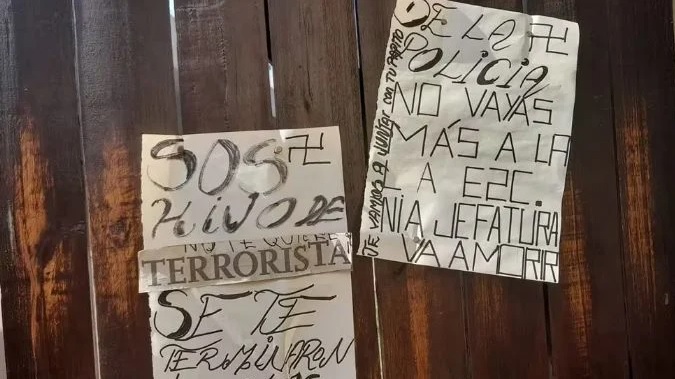 SOS
HiJO DE
NO TE QUIERE
TERRORISTA
SE TE
TERMINARON
DE LA
POLiCiA
NO VAYAS
MÁS A LA
NIA JEFATURA
VA A MORR
VAMOS A JUNTAR CON TU PAPITO